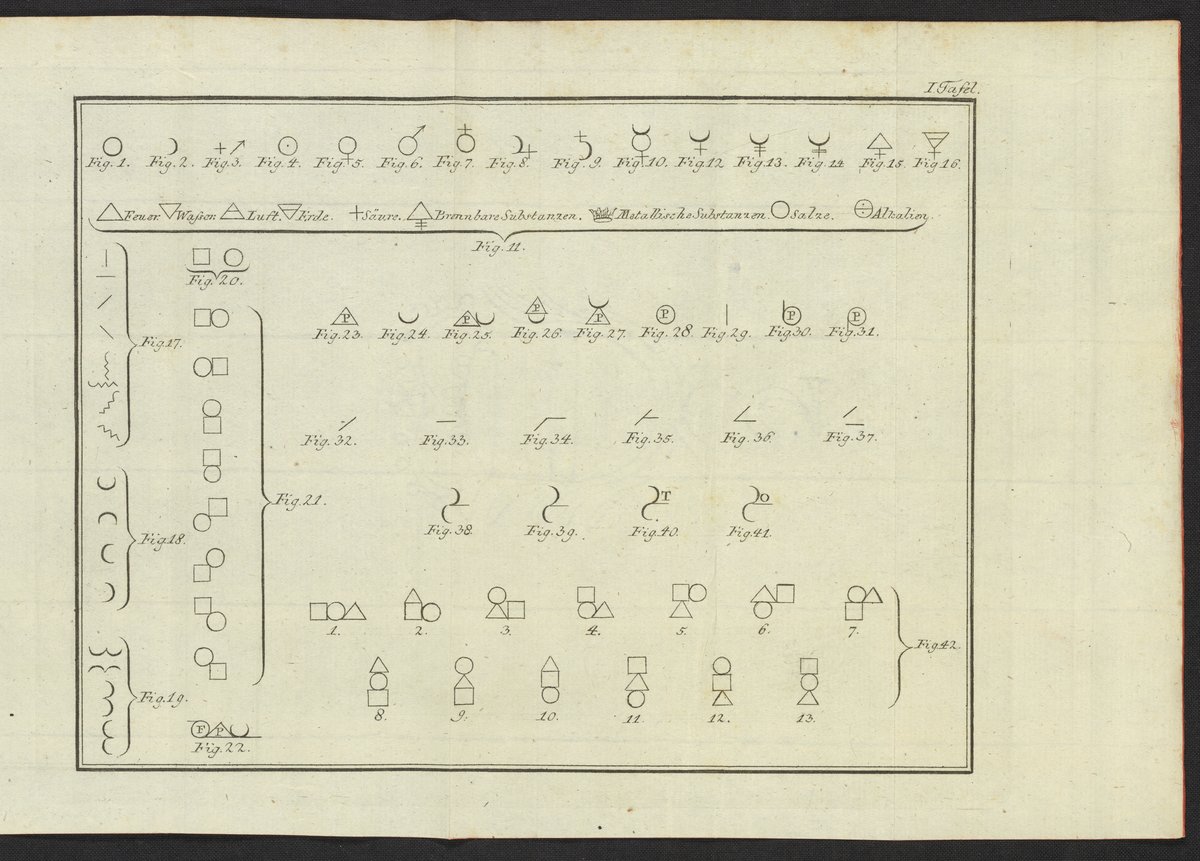 I. Tafel.
Fig. 1. Fig. 2. Fig. 3. Fig. 4. Fig. 5. Fig. 6. Fig. 7. Fig. 8. Fig. 9. Fig. 10. Fig. 12 Fig. 13. Fig. 14 Fig. 15. Fig. 16.
Feuer. Wasser. Luft. Erde. Säure. Brennbare Substanzen. Metallische Substanzen. Salze. Alkalien.
Fig. 11.
Fig. 17.
Fig. 18.
Fig. 19.
Fig. 20.
Fig. 21.
F P
Fig. 22.
P P P P P P P
Fig. 23. Fig. 24. Fig. 25. Fig. 26. Fig. 27. Fig. 28. Fig. 29. Fig. 30. Fig. 31.
Fig. 32. Fig. 33. Fig. 34. Fig. 35. Fig. 36. Fig. 37.
T O
Fig. 38. Fig. 39. Fig. 40. Fig. 41.
1. 2. 3. 4. 5. 6. 7.
Fig. 42.
8. 9. 10. 11. 12. 13.